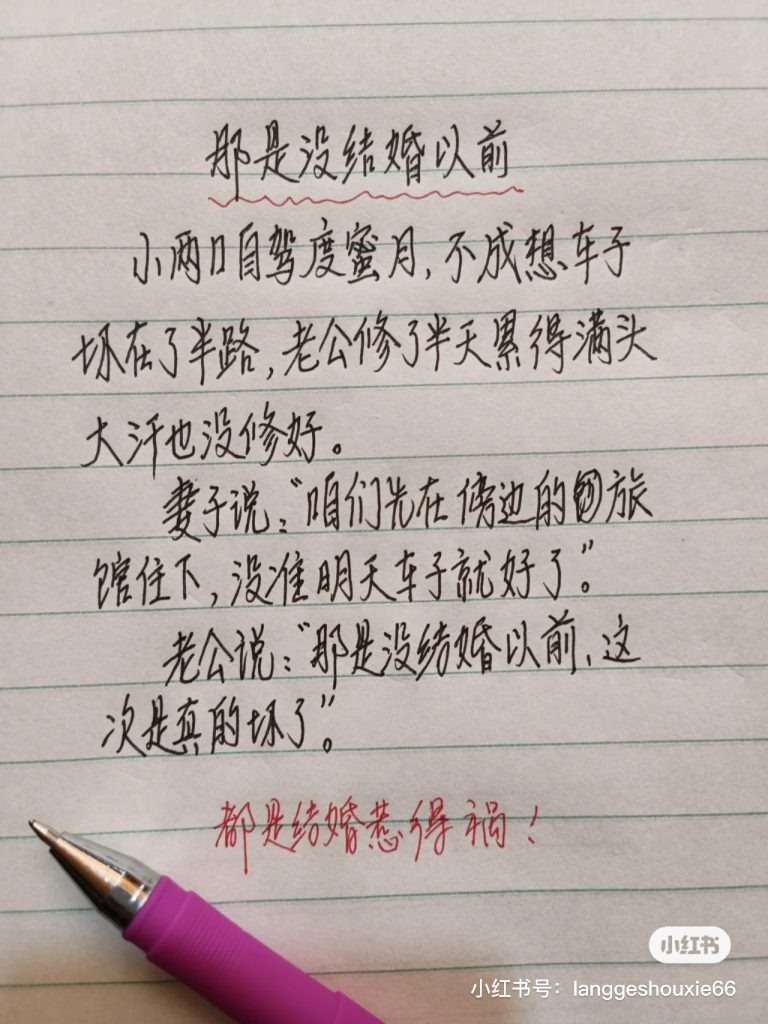 那是没结婚以前
小两口自驾度蜜月,不成想车子
坏在了半路,老公修了半天累得满头
大汗也没修好。
妻子说:“咱们先在傍边的旅
馆住下,没准明天车子就好了”。
老公说:“那是没结婚以前、这
次是真的坏了”。
都是结婚惹得祸!
小红书
小红书号:langgeshouxie66